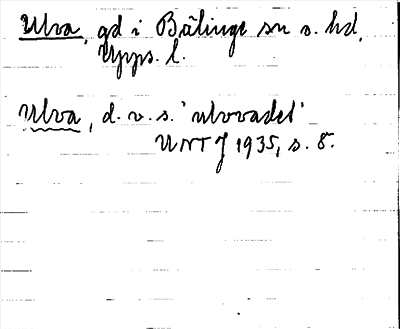 Ulva, gd i Bälinge sn o. hd,
Upps. l.
Ulva, d.v.s. 'ulvvadet'
UNT J 1935, s. 8.